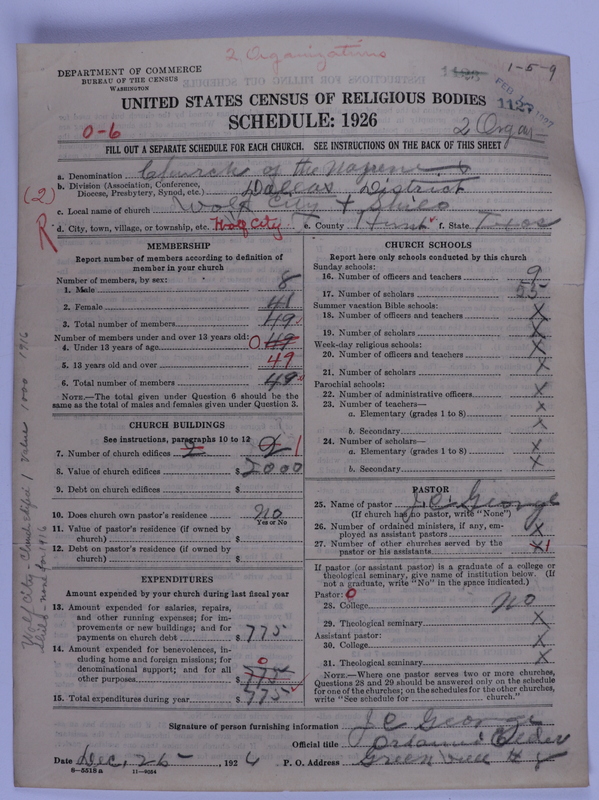 2 Organizations
DEPARTMENT OF COMMERCE
BUREAU OF THE CENSUS
WASHINGTON
1-5-9
FEB 1927
UNITED STATES CENSUS OF RELIGIOUS BODIES
1127
0-6
SCHEDULE: 1926
2 Organ
FILL OUT A SEPARATE SCHEDULE FOR EACH CHURCH. SEE INSTRUCTIONS ON THE BACK OF THIS SHEET
a. Denomination Church of the Nazarene
(2)
b. Division (Association, Conference, Diocese, Presbytery, Synod, etc.) Dallas District
R
c. Local name of church Wolf City + Shilo
d. City, town, village, or township, etc. Wolf City e. County Hunt f. State Texas
MEMBERSHIP
Report number of members according to definition of
member in your church
Number of members, by sex:
1. Male 8
2. Female 41
3. Total number of members 49
Number of members under and over 13 years old:
4. Under 13 years of age 0 49
5. 13 years old and over 49
6. Total number of members 49
NOTE.—The total given under Question 6 should be the
same as the total of males and females given under Question 3.
CHURCH BUILDINGS
See instructions, paragraphs 10 to 12
7. Number of church edifices 2 2 1
8. Value of church edifices $ 2000
9. Debt on church edifices $
10. Does church own pastor's residence? NO
Yes or No
11. Value of pastor's residence (if owned by
church) $
12. Debt on pastor's residence (if owned by
church) $
EXPENDITURES
Amount expended by your church during last fiscal year
13. Amount expended for salaries, repairs,
and other running expenses; for im-
provements or new buildings; and for
payments on church debt $ 775
14. Amount expended for benevolences, in-
cluding home and foreign missions; for
denominational support; and for all
other purposes 0 $ 775
15. Total expenditures during year $ 775
CHURCH SCHOOLS
Report here only schools conducted by this church
Sunday schools:
16. Number of officers and teachers 9
17. Number of scholars 55
Summer vacation Bible schools:
18. Number of officers and teachers X
19. Number of scholars X
Week-day religious schools:
20. Number of officers and teachers X
21. Number of scholars X
Parochial schools:
22. Number of administrative officers X
23. Number of teachers—
a. Elementary (grades 1 to 8) X
b. Secondary X
24. Number of scholars—
a. Elementary (grades 1 to 8) X
b. Secondary X
PASTOR
25. Name of pastor J. C. George
(If church has no pastor, write "None")
26. Number of ordained ministers, if any, em-
ployed as assistant pastors X
27. Number of other churches served by the
pastor or his assistants X 1
If pastor (or assistant pastor) is a graduate of a college or
theological seminary, give name of institution below. (If
not a graduate, write "No" in the space indicated.)
Pastor: 0
28. College no
29. Theological seminary X
Assistant pastor:
30. College X
31. Theological seminary X
NOTE.—Where one pastor serves two or more churches,
Questions 28 and 29 should be answered only on the schedule
for one of the churches; on the schedules for the other churches,
write "See schedule for church."
Signature of person furnishing information J C George
Official title Ordained Elder
Date Dec, 26 1926 P. O. Address Greenville
8-5518a 11-9054
Wolf City - Church edifice 1 value 1000 1916
Shilo - not for 1916